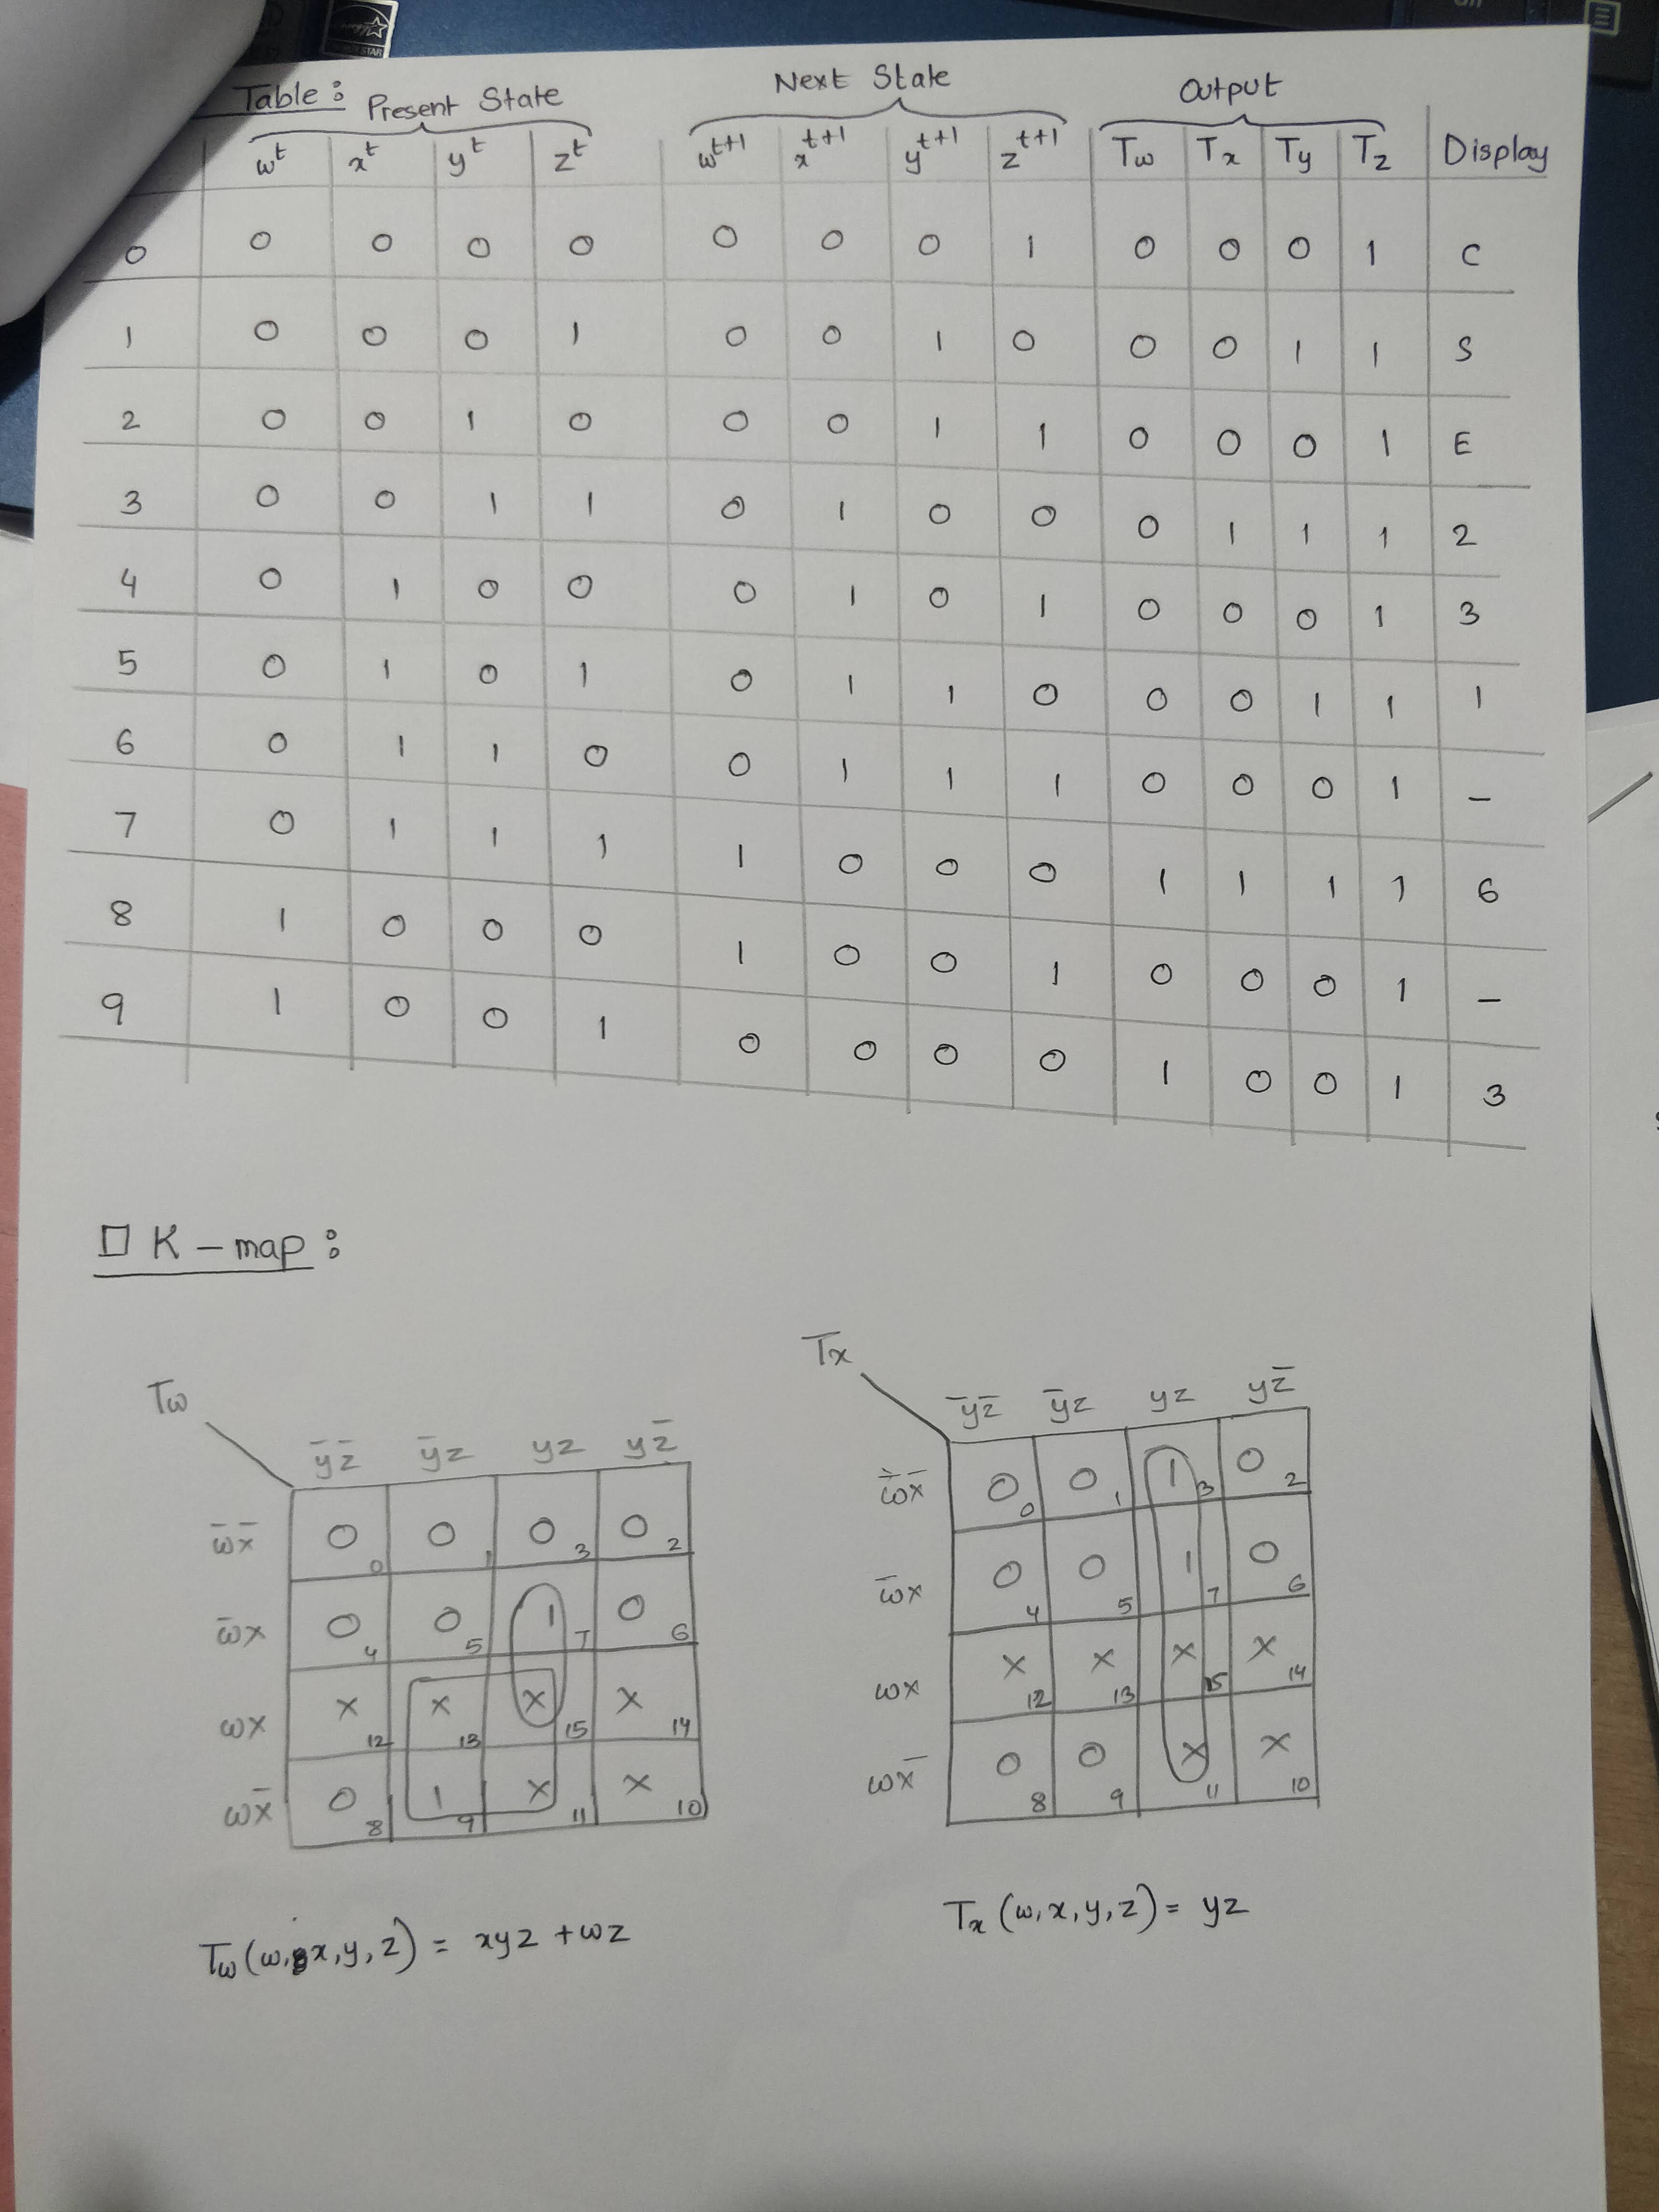 Table: Present State Next State Output
wᵗ xᵗ yᵗ zᵗ wᵗ⁺¹ xᵗ⁺¹ yᵗ⁺¹ zᵗ⁺¹ Tw Tx Ty Tz Display
0 0 0 0 0 0 0 0 1 0 0 0 1 C
1 0 0 0 1 0 0 1 0 0 0 1 1 S
2 0 0 1 0 0 0 1 1 0 0 0 1 E
3 0 0 1 1 0 1 0 0 0 1 1 1 2
4 0 1 0 0 0 1 0 1 0 0 0 1 3
5 0 1 0 1 0 1 1 0 0 0 1 1 1
6 0 1 1 0 0 1 1 1 0 0 0 1 –
7 0 1 1 1 1 0 0 0 1 1 1 1 6
8 1 0 0 0 1 0 0 1 0 0 0 1 –
9 1 0 0 1 0 0 0 0 1 0 0 1 3
□ K-map:
Tw
y̅z̅ y̅z yz yz̅
w̅x̅ 0 0 0 1 0 3 0 2
w̅x 0 4 0 5 1 7 0 6
wx x 12 x 13 x 15 x 14
wx̅ 0 8 1 9 x 11 x 10
Tw(w,x,y,z) = xyz + wz
Tx
y̅z̅ y̅z yz yz̅
w̅x̅ 0 0 0 1 1 3 0 2
w̅x 0 4 0 5 1 7 0 6
wx x 12 x 13 x 15 x 14
wx̅ 0 8 0 9 x 11 x 10
Tx(w,x,y,z) = yz